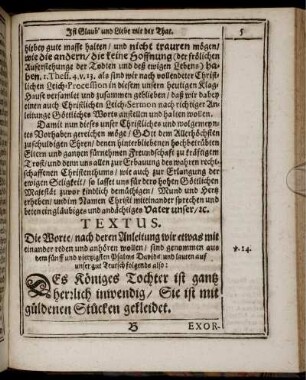 Ist Glaub' und Liebe mit der That. 5
hiebey gute masse halten/ und nicht trauren mögen/
wie die andern/ die keine Hoffnung (der frölichen
Aufferstehunge der Todten und deß ewigen Lebens) ha-
ben. 1. Thess. 4. v. 13. als sind wir nach vollendeter Christ-
lichen Leich-Procession in diesem unsern heutigen Klag-
Hause versamlet und zusammen geblieben/ daß wir dabey
einen auch Christlichen Leich-Sermon nach richtiger An-
leitunge Göttliches Worts anstellen und halten wollen.
Damit nun dieses unser Christliches und wolgemein-
tes Vorhaben gereichen möge/ GOtt dem Allerhöchsten
zu schuldigen Ehren/ denen hinterbliebenen hochbetrübten
Eltern und gantzen fürnehmen Freundschaft zu kräfftigem
Trost/ und denn uns allen zur Erbauung des wahren recht-
schaffenen Christenthums/ wie auch zur Erlangung der
ewigen Seligkeit/ so lasset uns für dero hohen Göttlichen
Majestät zuvor kindlich demüthigen/ Mund und Hertz
erheben/ und im Namen Christi mitteinander sprechen und
beten ein gläubiges und andächtiges Vater unser/ ꝛc.
TEXTUS.
Die Worte/ nach deren Anleitung wir etwas mit
einander reden und anhören wollen/ sind genommen aus
dem fünff und viertzigsten Psalmen Davids/ und lauten auf
unser gut Teutsch folgends also:
v. 14.
DEs Königes Tochter ist gantz
herrlich inwendig/ Sie ist mit
güldenen Stücken gekleidet.
B EXOR-